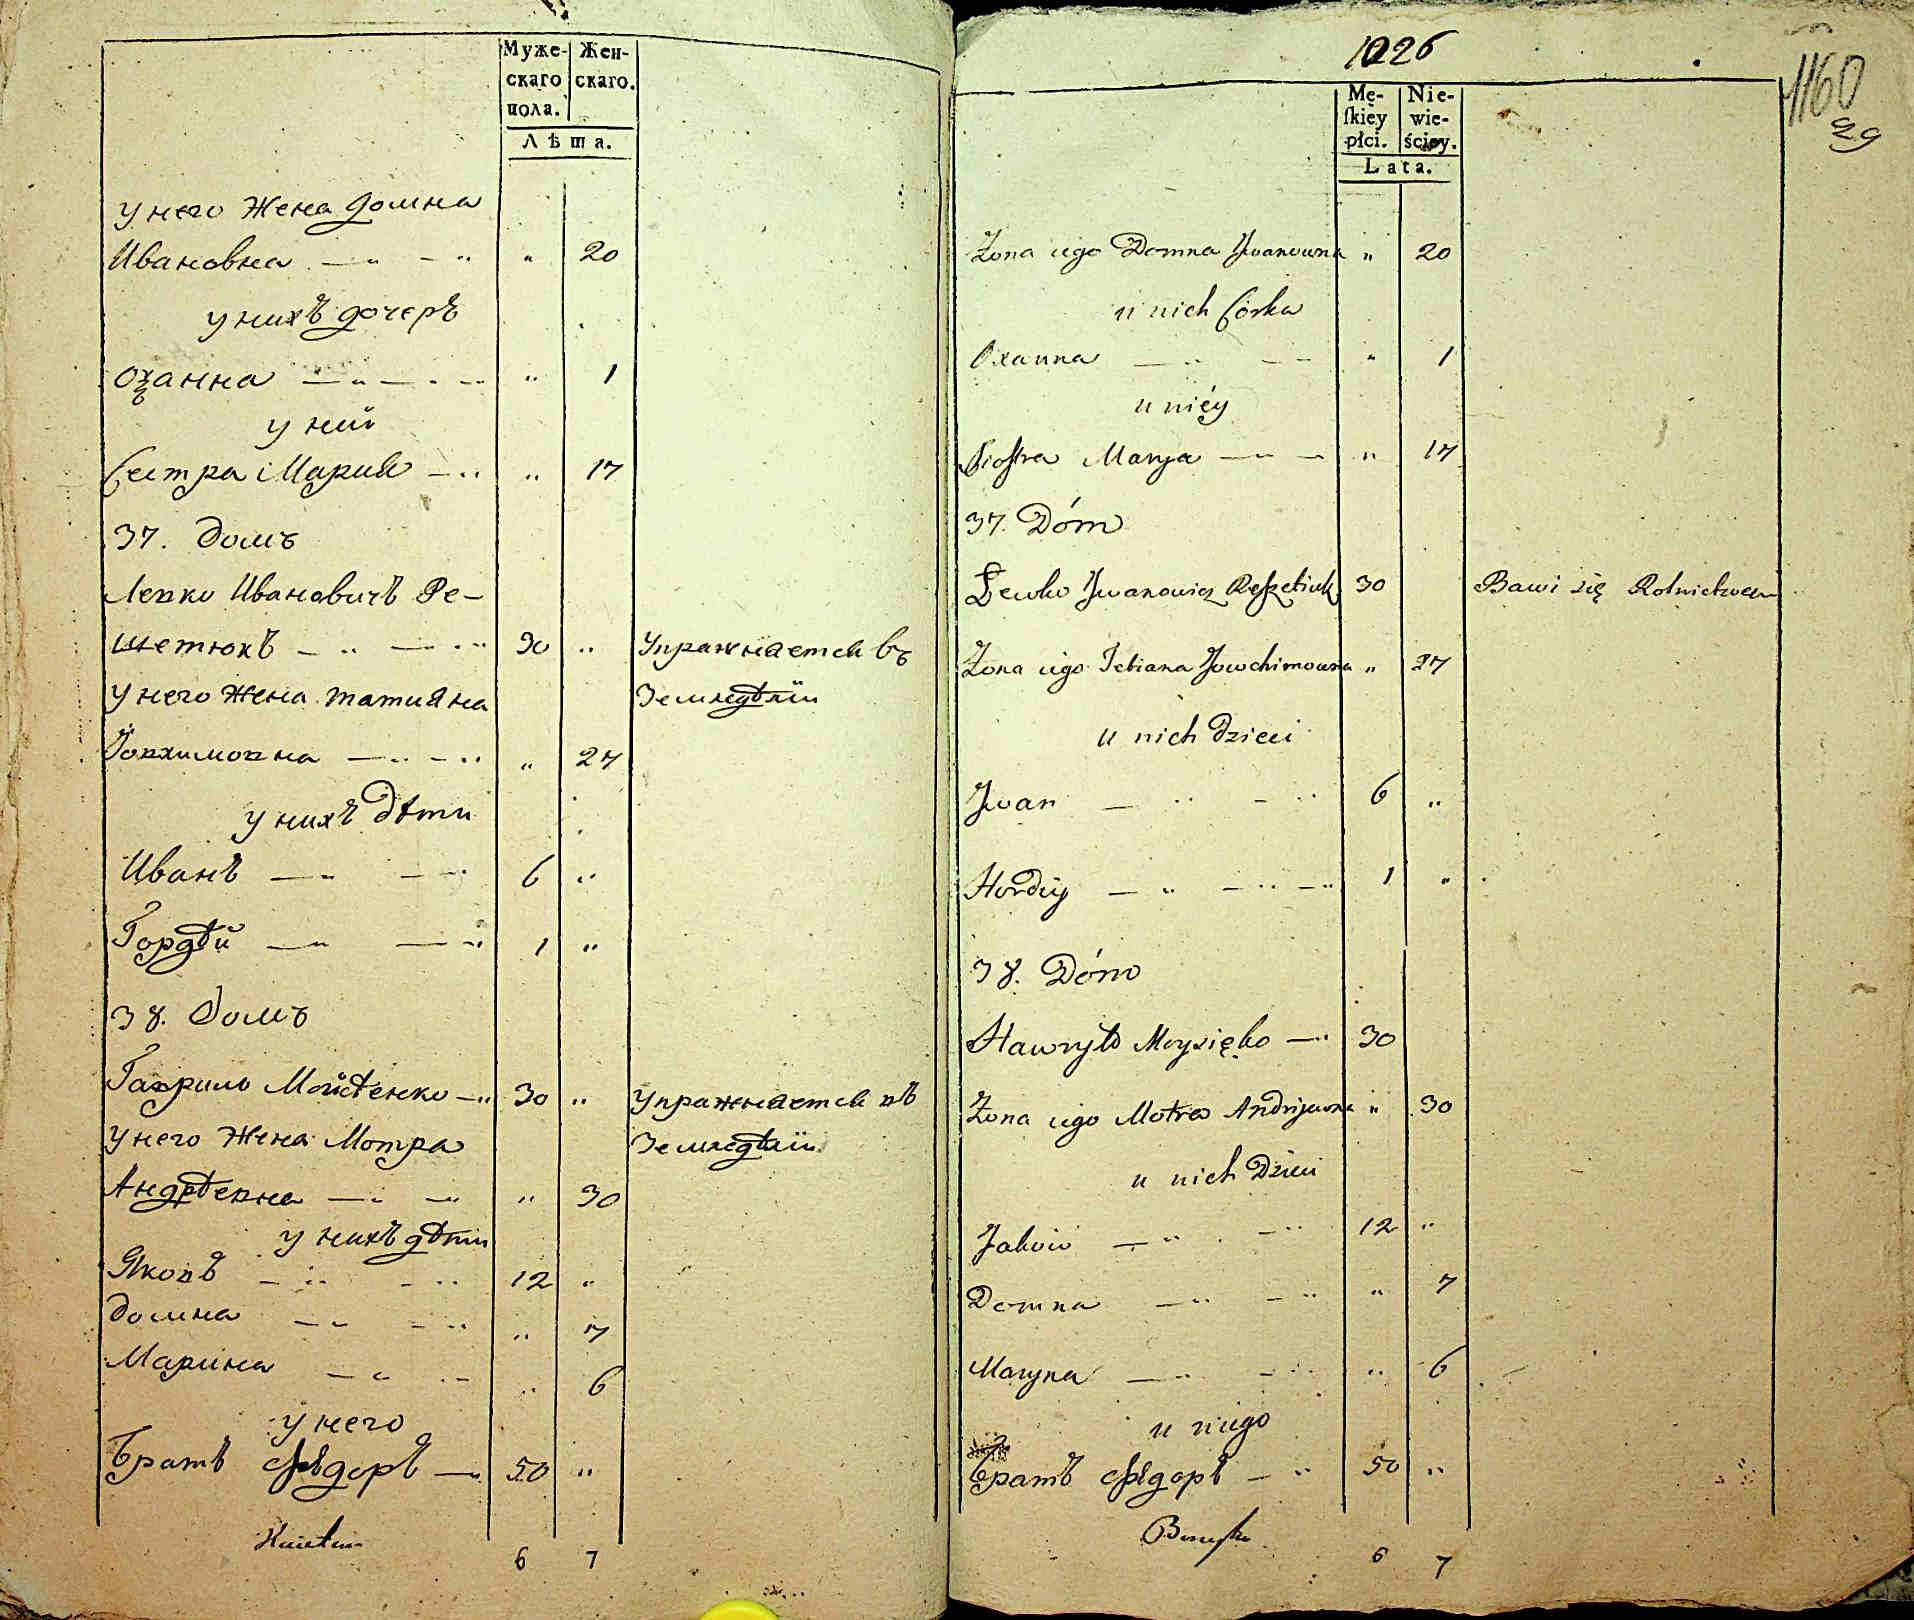 Муже-
скаго
пола.
Жен-
скаго.
Лѣта.
у него Жена Домна
Ивановна — „ — „ „ 20
у нихъ дочеръ
Оханна — „ — „ „ 1
у ний
Сестра Мария — „ „ 17
37. Домъ
Левко Ивановичъ Ре-
шетюкъ — „ — „ 30 „ Упражняется въ
у него Жена татияна Земледѣлїи
Їовхимовна — „ — „ „ 27
у нихъ дѣти
Иванъ — „ — „ 6 „
Гордѣй — „ — „ 1 „
38. Домъ
Гаврило Мойсѣенко — „ 30 „ упражняется въ
у него Жена Мотра Земледѣлїи
Андрѣевна — „ — „ „ 30
у нихъ дѣти
Яковъ — „ — „ 12 „
Домна — „ — „ „ 7
Марина — „ — „ „ 6
у него
Братъ Ѳедоръ — „ 50 „
6 7
1026
1160
29
Mę-
ſkiey
płci.
Nie-
wie-
ściey.
Lata.
Żona iego Domna Jwanowna „ 20
u nich Córka
Oxanna — „ — „ 1
u niéy
Siostra Marya — „ — „ 17
37. Dóm
Lewko Jwanowicz Reszetiuk 30 Bawi się Rolnictwem
Żona iego Tetiana Jowchimowna „ 27
u nich Dzieci
Jwan — „ — „ 6 „
Hordiy — „ — „ — „ 1 „
38. Dóm
Hawryło Moysięko — „ 30
Żona iego Motra Andrijewna „ 30
u nich Dzieci
Jakow — „ — „ 12 „
Domna — „ — „ „ 7
Maryna — „ — „ „ 6
u niego
Братъ Ѳедоръ — „ 50 „
6 7